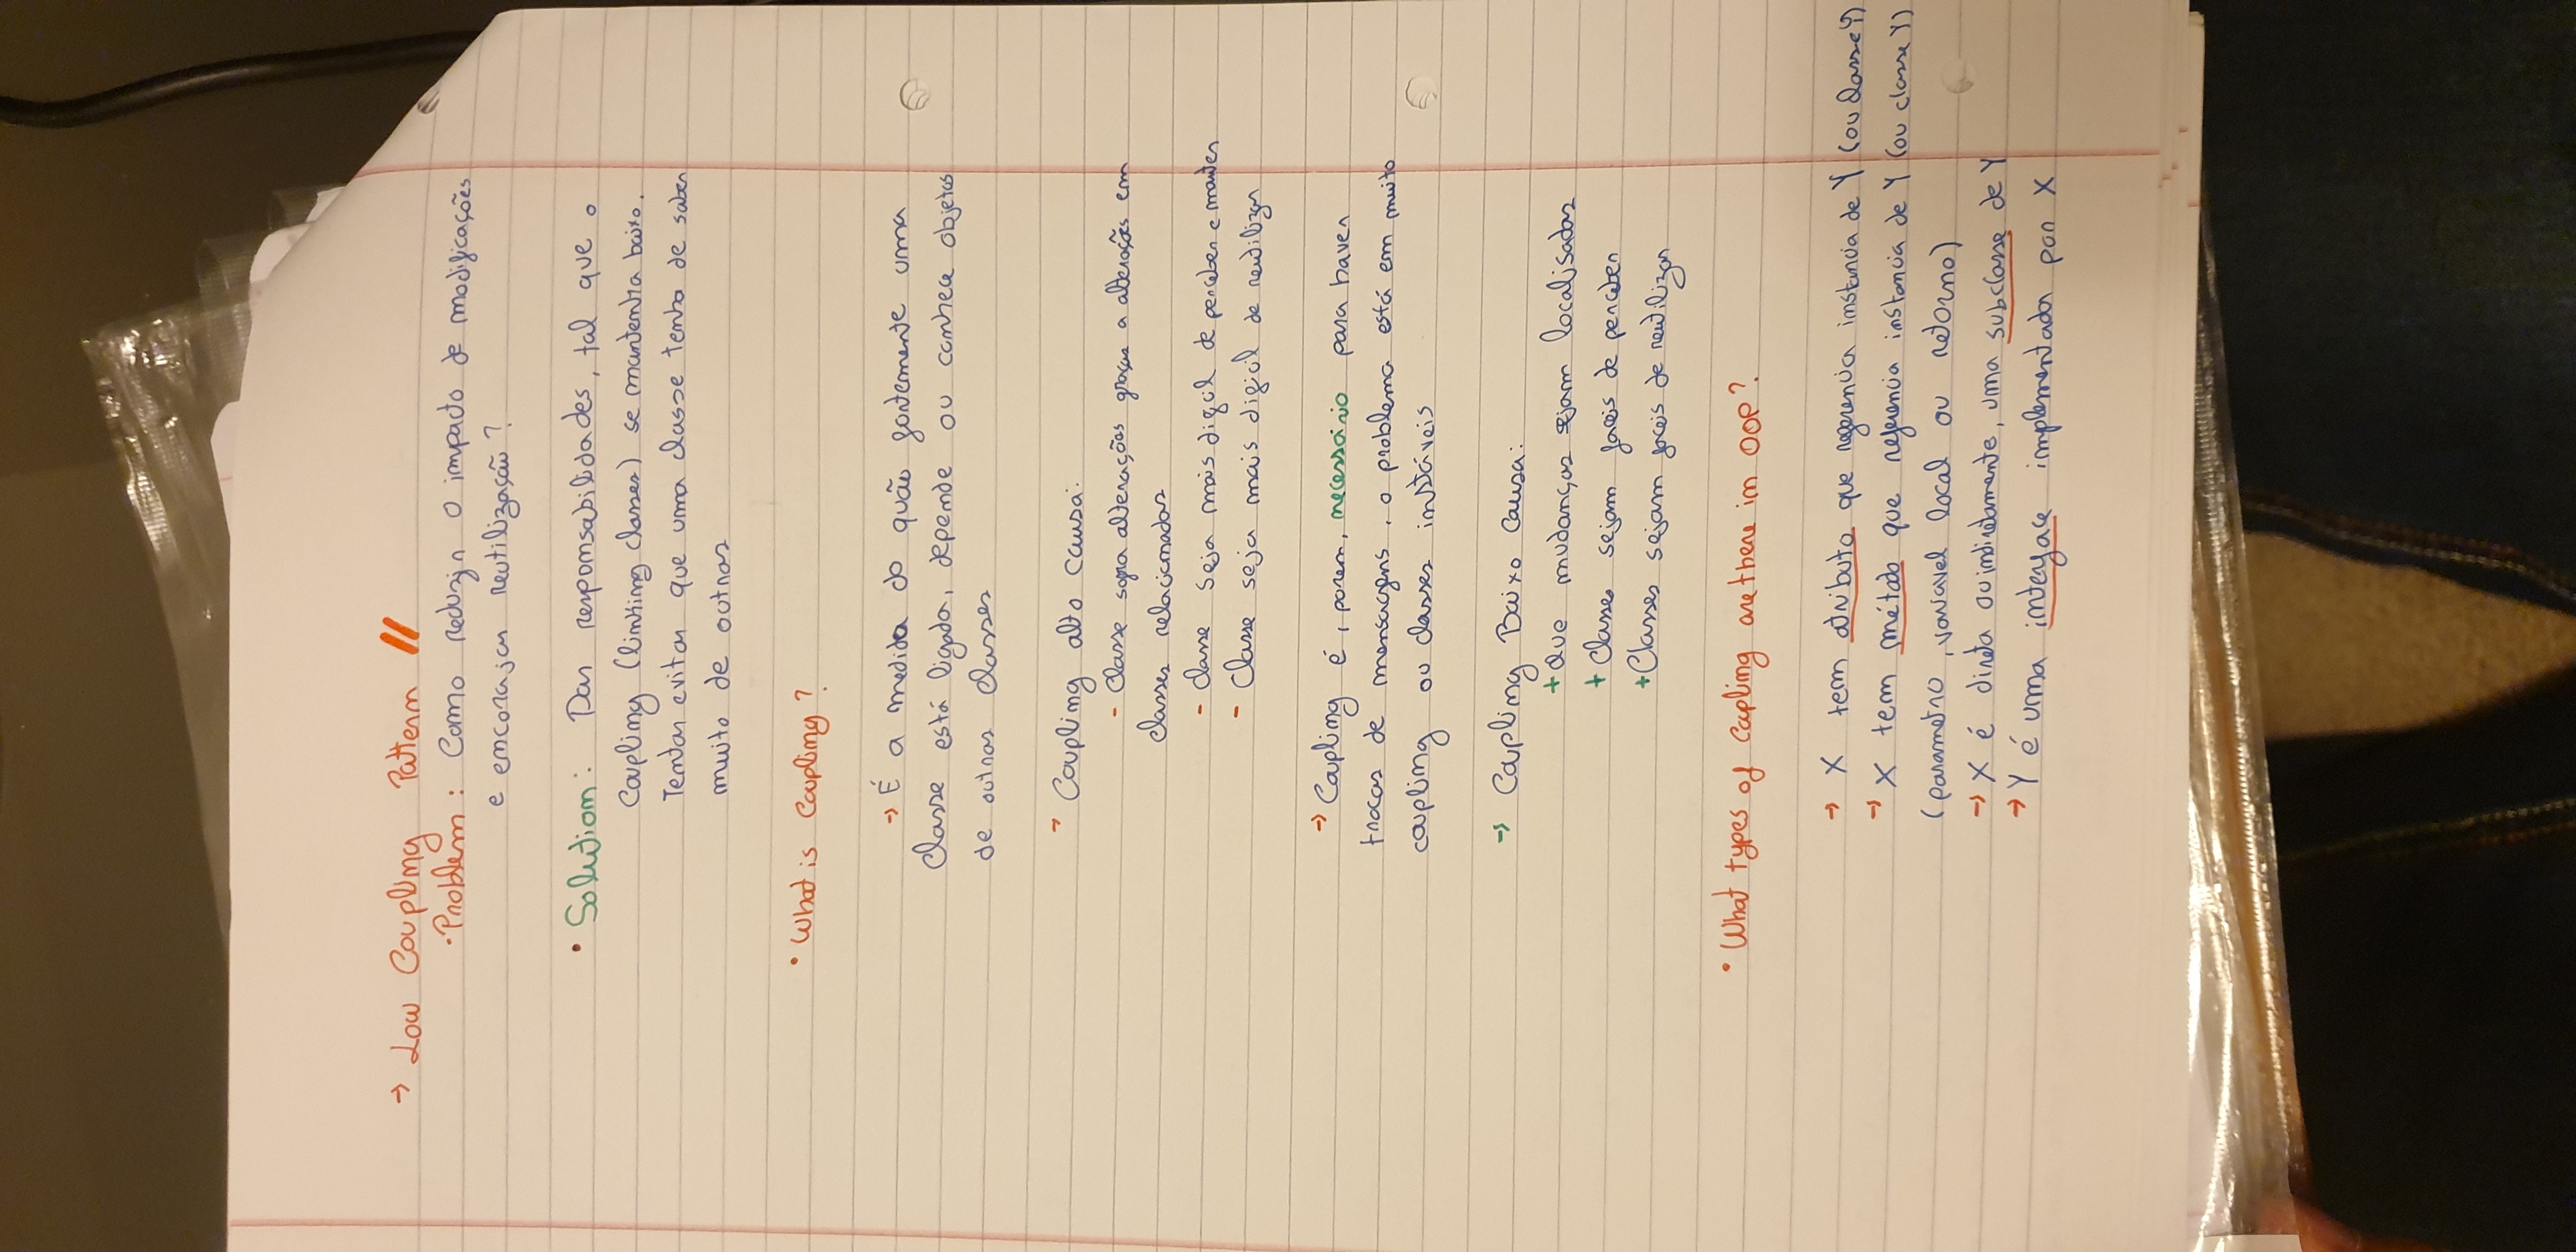 → Low Coupling Pattern //
• Problem : Como reduzir o impacto de modificações
e encorajar reutilização ?
• Solution : Dar responsabilidades, tal que o
Coupling (linking classes) se mantenha baixo.
Tentar evitar que uma classe tenha de saber
muito de outras
• What is Coupling ?
→ É a medida do quão fortemente uma
Classe está ligada, depende ou conhece objetos
de outras Classes
→ Coupling alto causa:
- Classe sofra alterações graças a alterações em
classes relacionadas
- Classe seja mais dificil de perceber e manter
- Classe seja mais dificil de reutilizar
→ Coupling é, porem, necessário para haver
trocas de mensagens, o problema está em muito
coupling ou classes instáveis
→ Coupling Baixo Causa:
+ Que mudanças sejam localisadas
+ Classes sejam faceis de perceber
+ Classes sejam faceis de reutilizar
• What types of Coupling are there in OOP ?
→ X tem atributo que referencia instancia de Y (ou Classe Y)
→ X tem método que referencia instancia de Y (ou classe Y)
(parametro, variavel local ou retorno)
→ X é direta ou indiretamente, uma subclasse de Y
→ Y é uma interface implementada por X